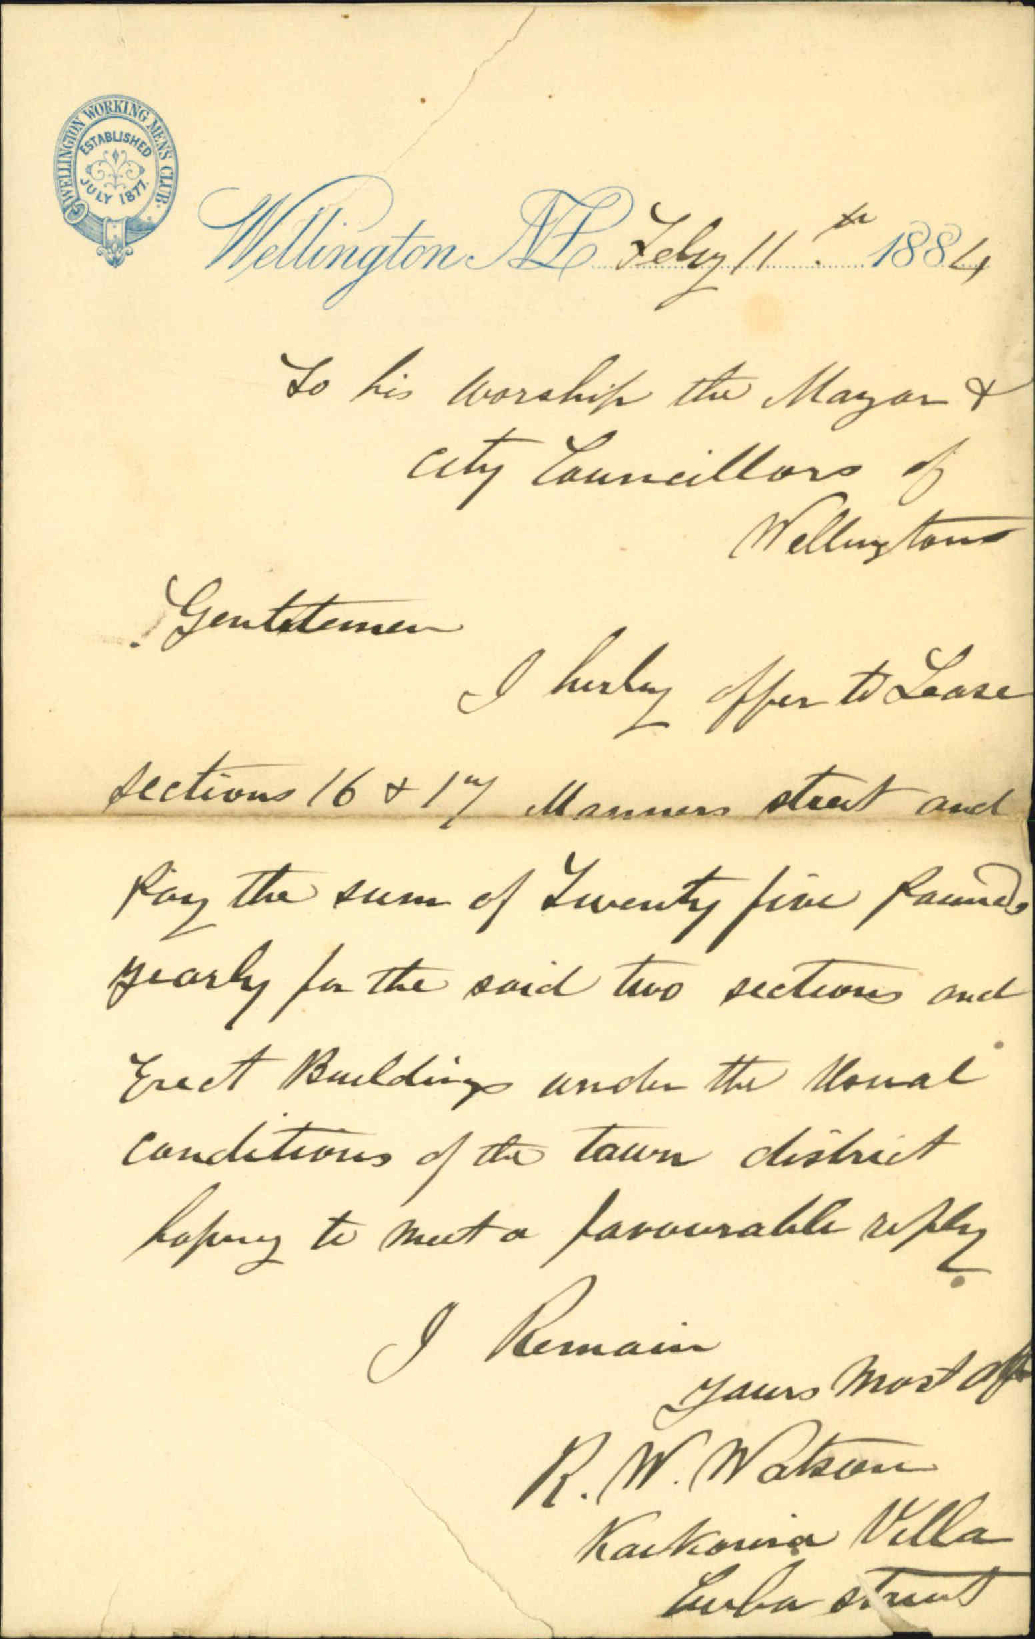 WELLINGTON WORKING MEN'S CLUB.
ESTABLISHED
JULY 1877.
Wellington NZ Feby 11th 1884
To his Worship the Mayor &
City Councillors of
Wellington
Gentlemen
I herby offer to Lease
sections 16 & 17 Manners street and
Pay the sum of Twenty five Pounds
yearly for the said two sections and
Erect Buildings under the Usual
conditions of the town district
hoping to meet a favourable reply
I Remain
yours Most
R. W. Watson
Villa
Cuba street